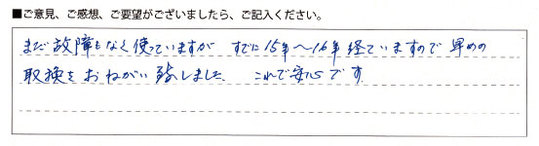 ■ご意見、ご感想、ご要望がございましたら、ご記入ください。
まだ故障もなく使っていますが すでに15年～16年経ていますので早めの
取換をおねがい致しました これで安心です